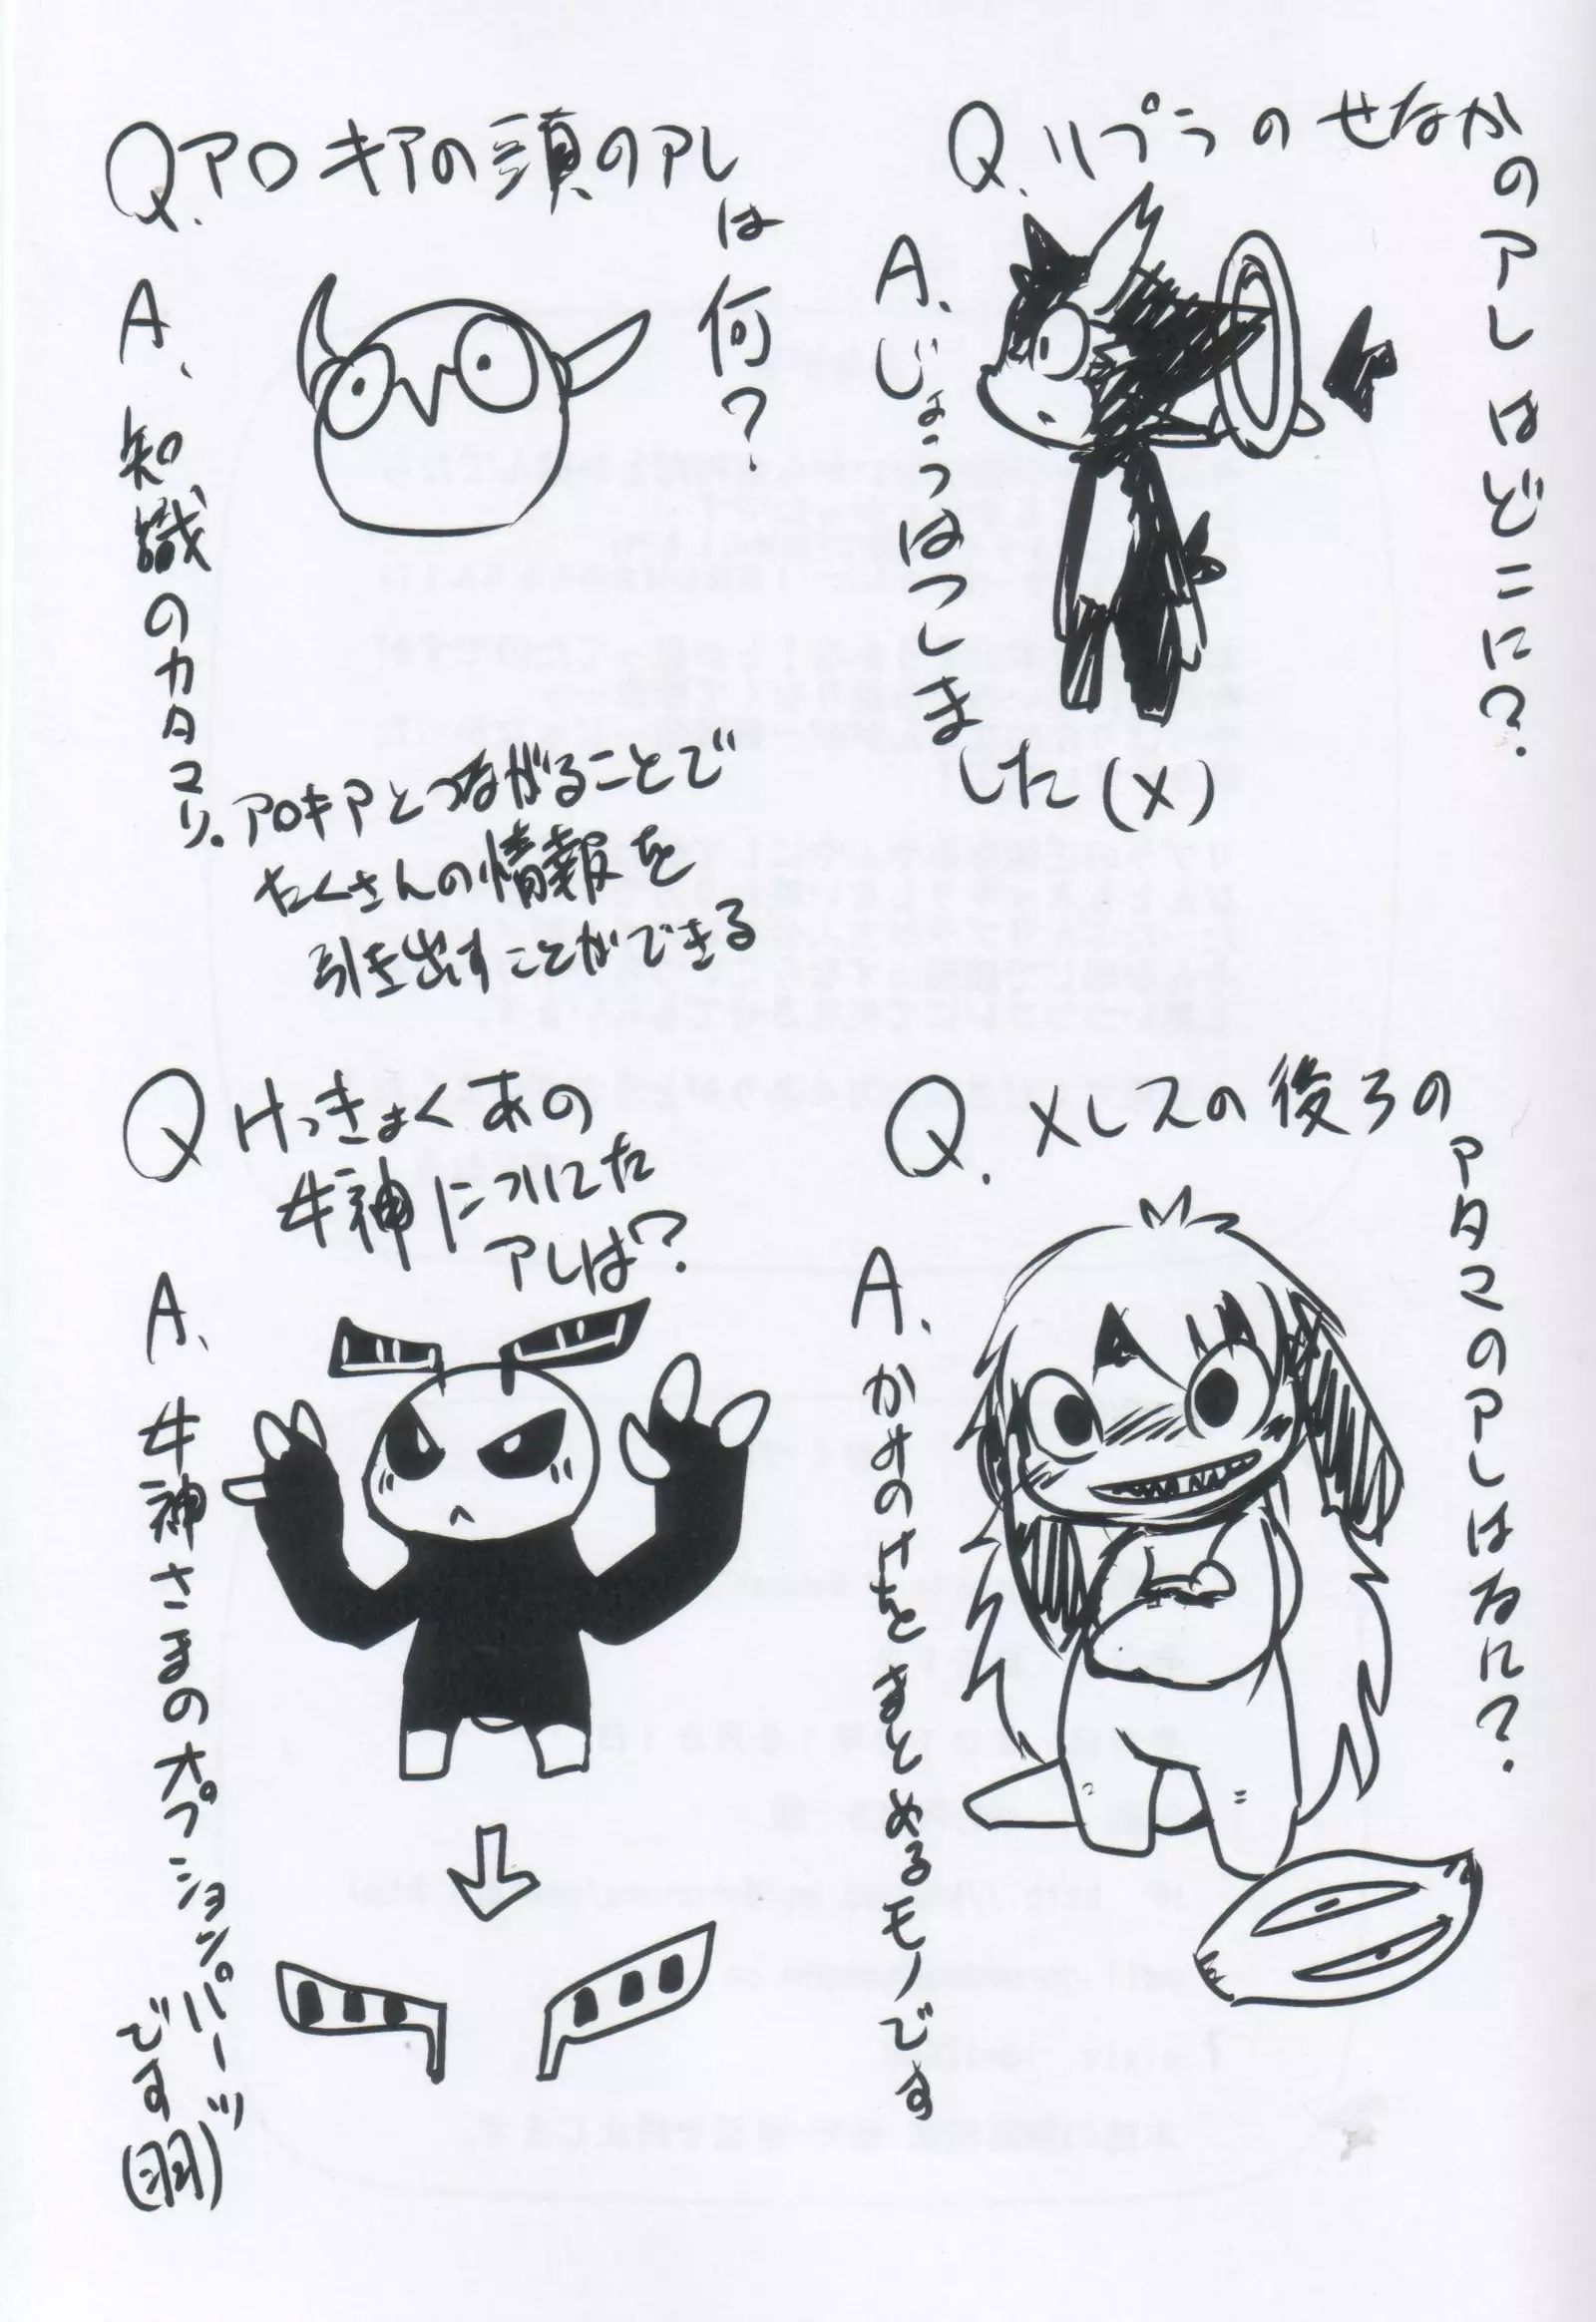 Q.リプラのせなか
のアレはどこに？
A.じょうはつしま
した(X)
Q.アロキアの頭のアレ
は何？
A、知識のカタマリ。
アロキアとつながることで
たくさんの情報を
引き出すことができる
Q.メレスの後ろの
アタマのアレはなに？
A.かみのけをまとめるモノです
Qけっきょくあの
女神についてた
アレは？
A、女神さまのオプションパーツ
です(羽)